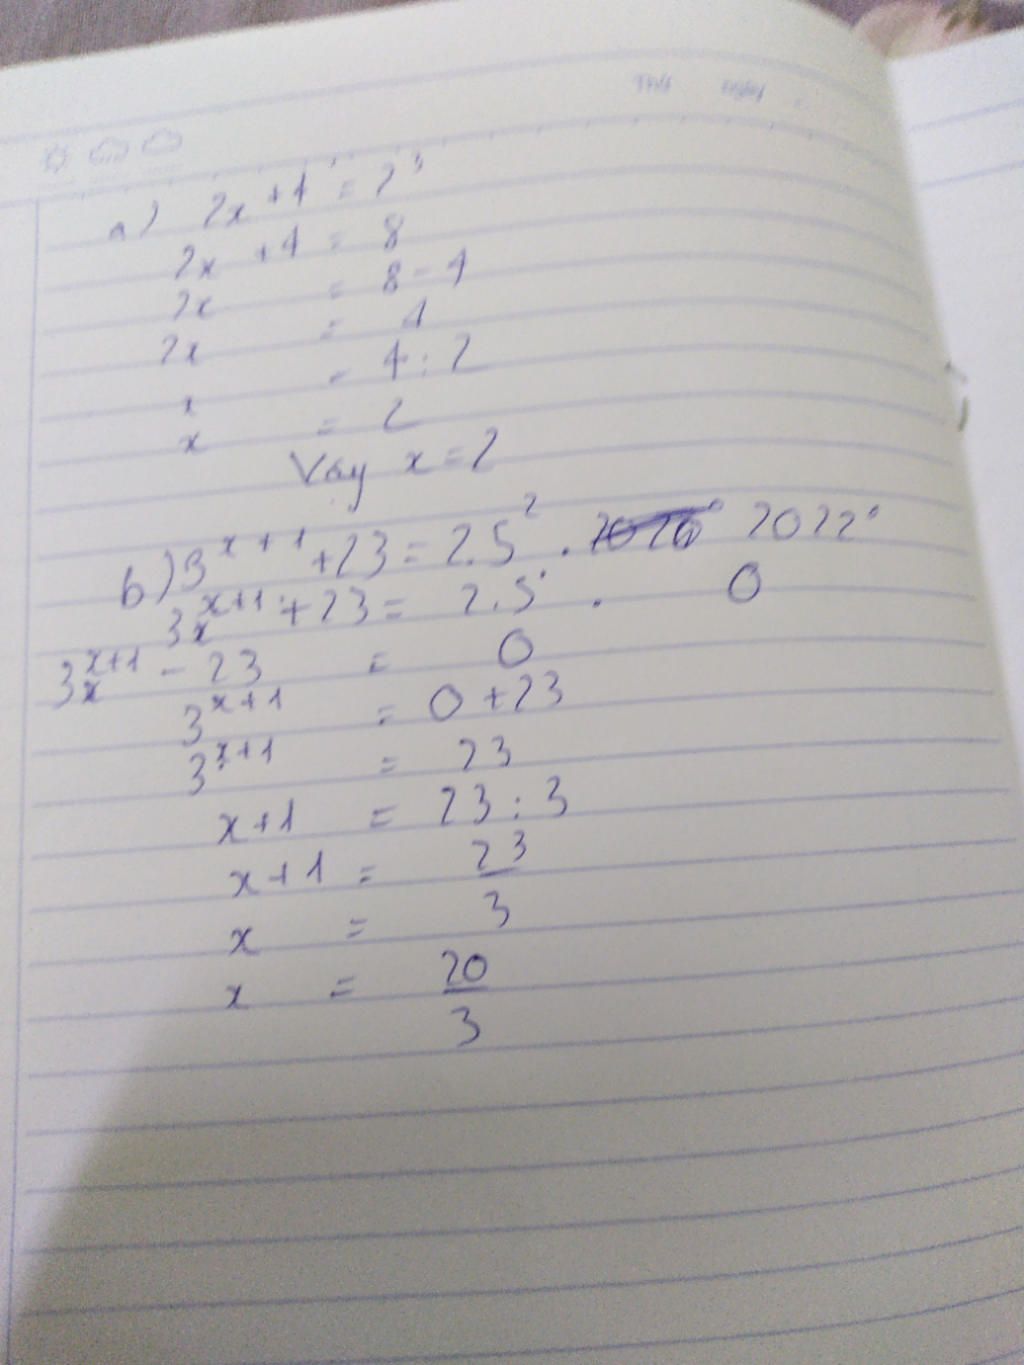 Thứ ngày
a) 2x + 4 = 2³
2x + 4 = 8
2x = 8 - 4
2x = 4
x = 4 : 2
x = 2
Vậy x = 2
b) 3ˣ⁺¹ + 23 = 2.5² . 2022⁰
3ˣ⁺¹ + 23 = 2.5 . 0
3ˣ⁺¹ - 23 = 0
3ˣ⁺¹ = 0 + 23
3ˣ⁺¹ = 23
x + 1 = 23 : 3
x + 1 = 23/3
x =
x = 20/3